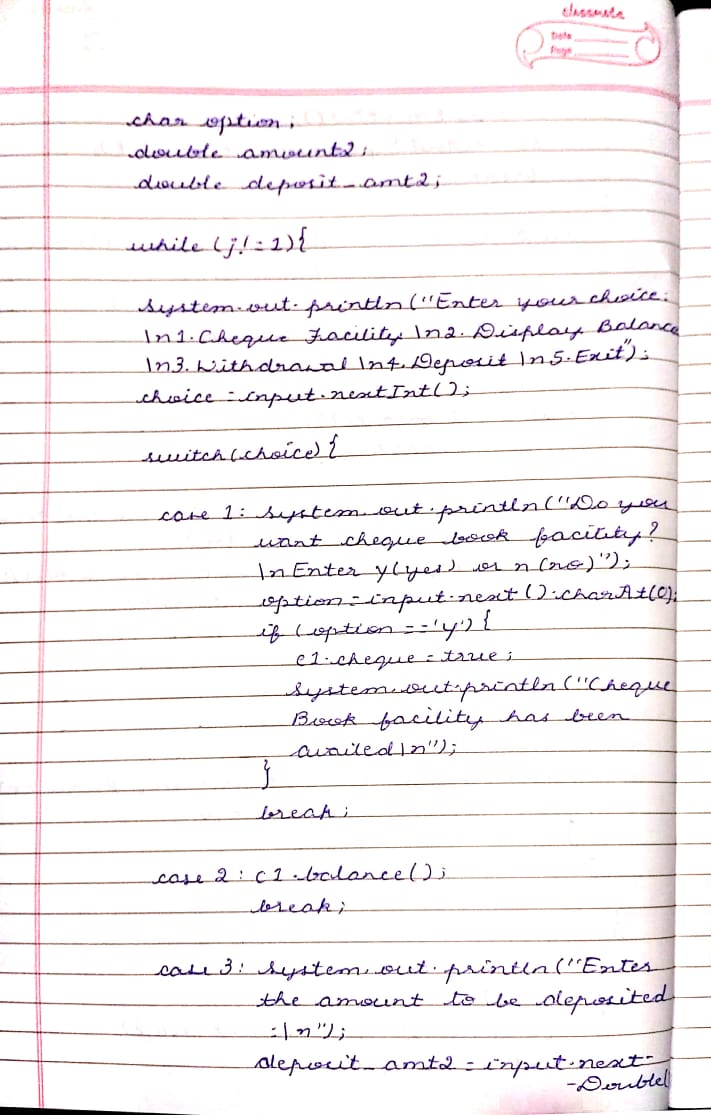 classmate
Date
Page
char option;
double amount2;
double deposit_amt2;
while (j!=1){
System.out.println("Enter your choice:
\n1.Cheque Facility \n2.Display Balance
\n3.Withdrawal \n4.Deposit \n5.Exit");
choice=input.nextInt();
switch(choice){
case 1: System.out.println("Do you
want cheque book facility?
\nEnter y(yes) or n(no)");
option=input.next().charAt(0);
if (option=='y'){
c1.cheque=true;
System.out.println("Cheque
Book facility has been
availed\n");
}
break;
case 2: c1.balance();
break;
case 3: System.out.println("Enter
the amount to be deposited
:\n");
deposit_amt2=input.next-
-Double(